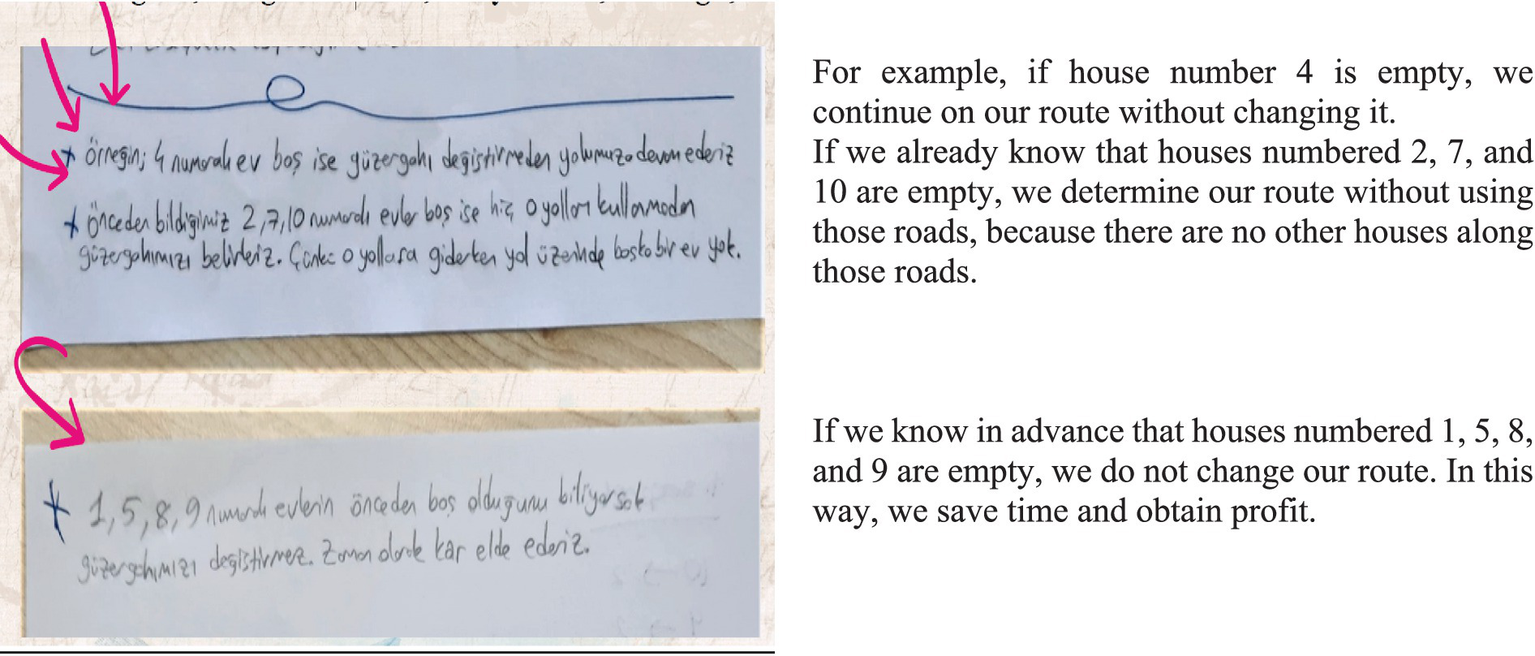 * örneğin; 4 numaralı ev boş ise güzergahı değiştirmeden yolumuza devam ederiz
* Önceden bildiğimiz 2,7,10 numaralı evler boş ise hiç o yolları kullanmadan
güzergahımızı belirleriz. Çünkü o yollara giderken yol üzerinde başka bir ev yok.
* 1,5,8,9 numaralı evlerin önceden boş olduğunu biliyorsak
güzergahımızı değiştirmez. Zaman olarak kar elde ederiz.
For example, if house number 4 is empty, we
continue on our route without changing it.
If we already know that houses numbered 2, 7, and
10 are empty, we determine our route without using
those roads, because there are no other houses along
those roads.
If we know in advance that houses numbered 1, 5, 8,
and 9 are empty, we do not change our route. In this
way, we save time and obtain profit.